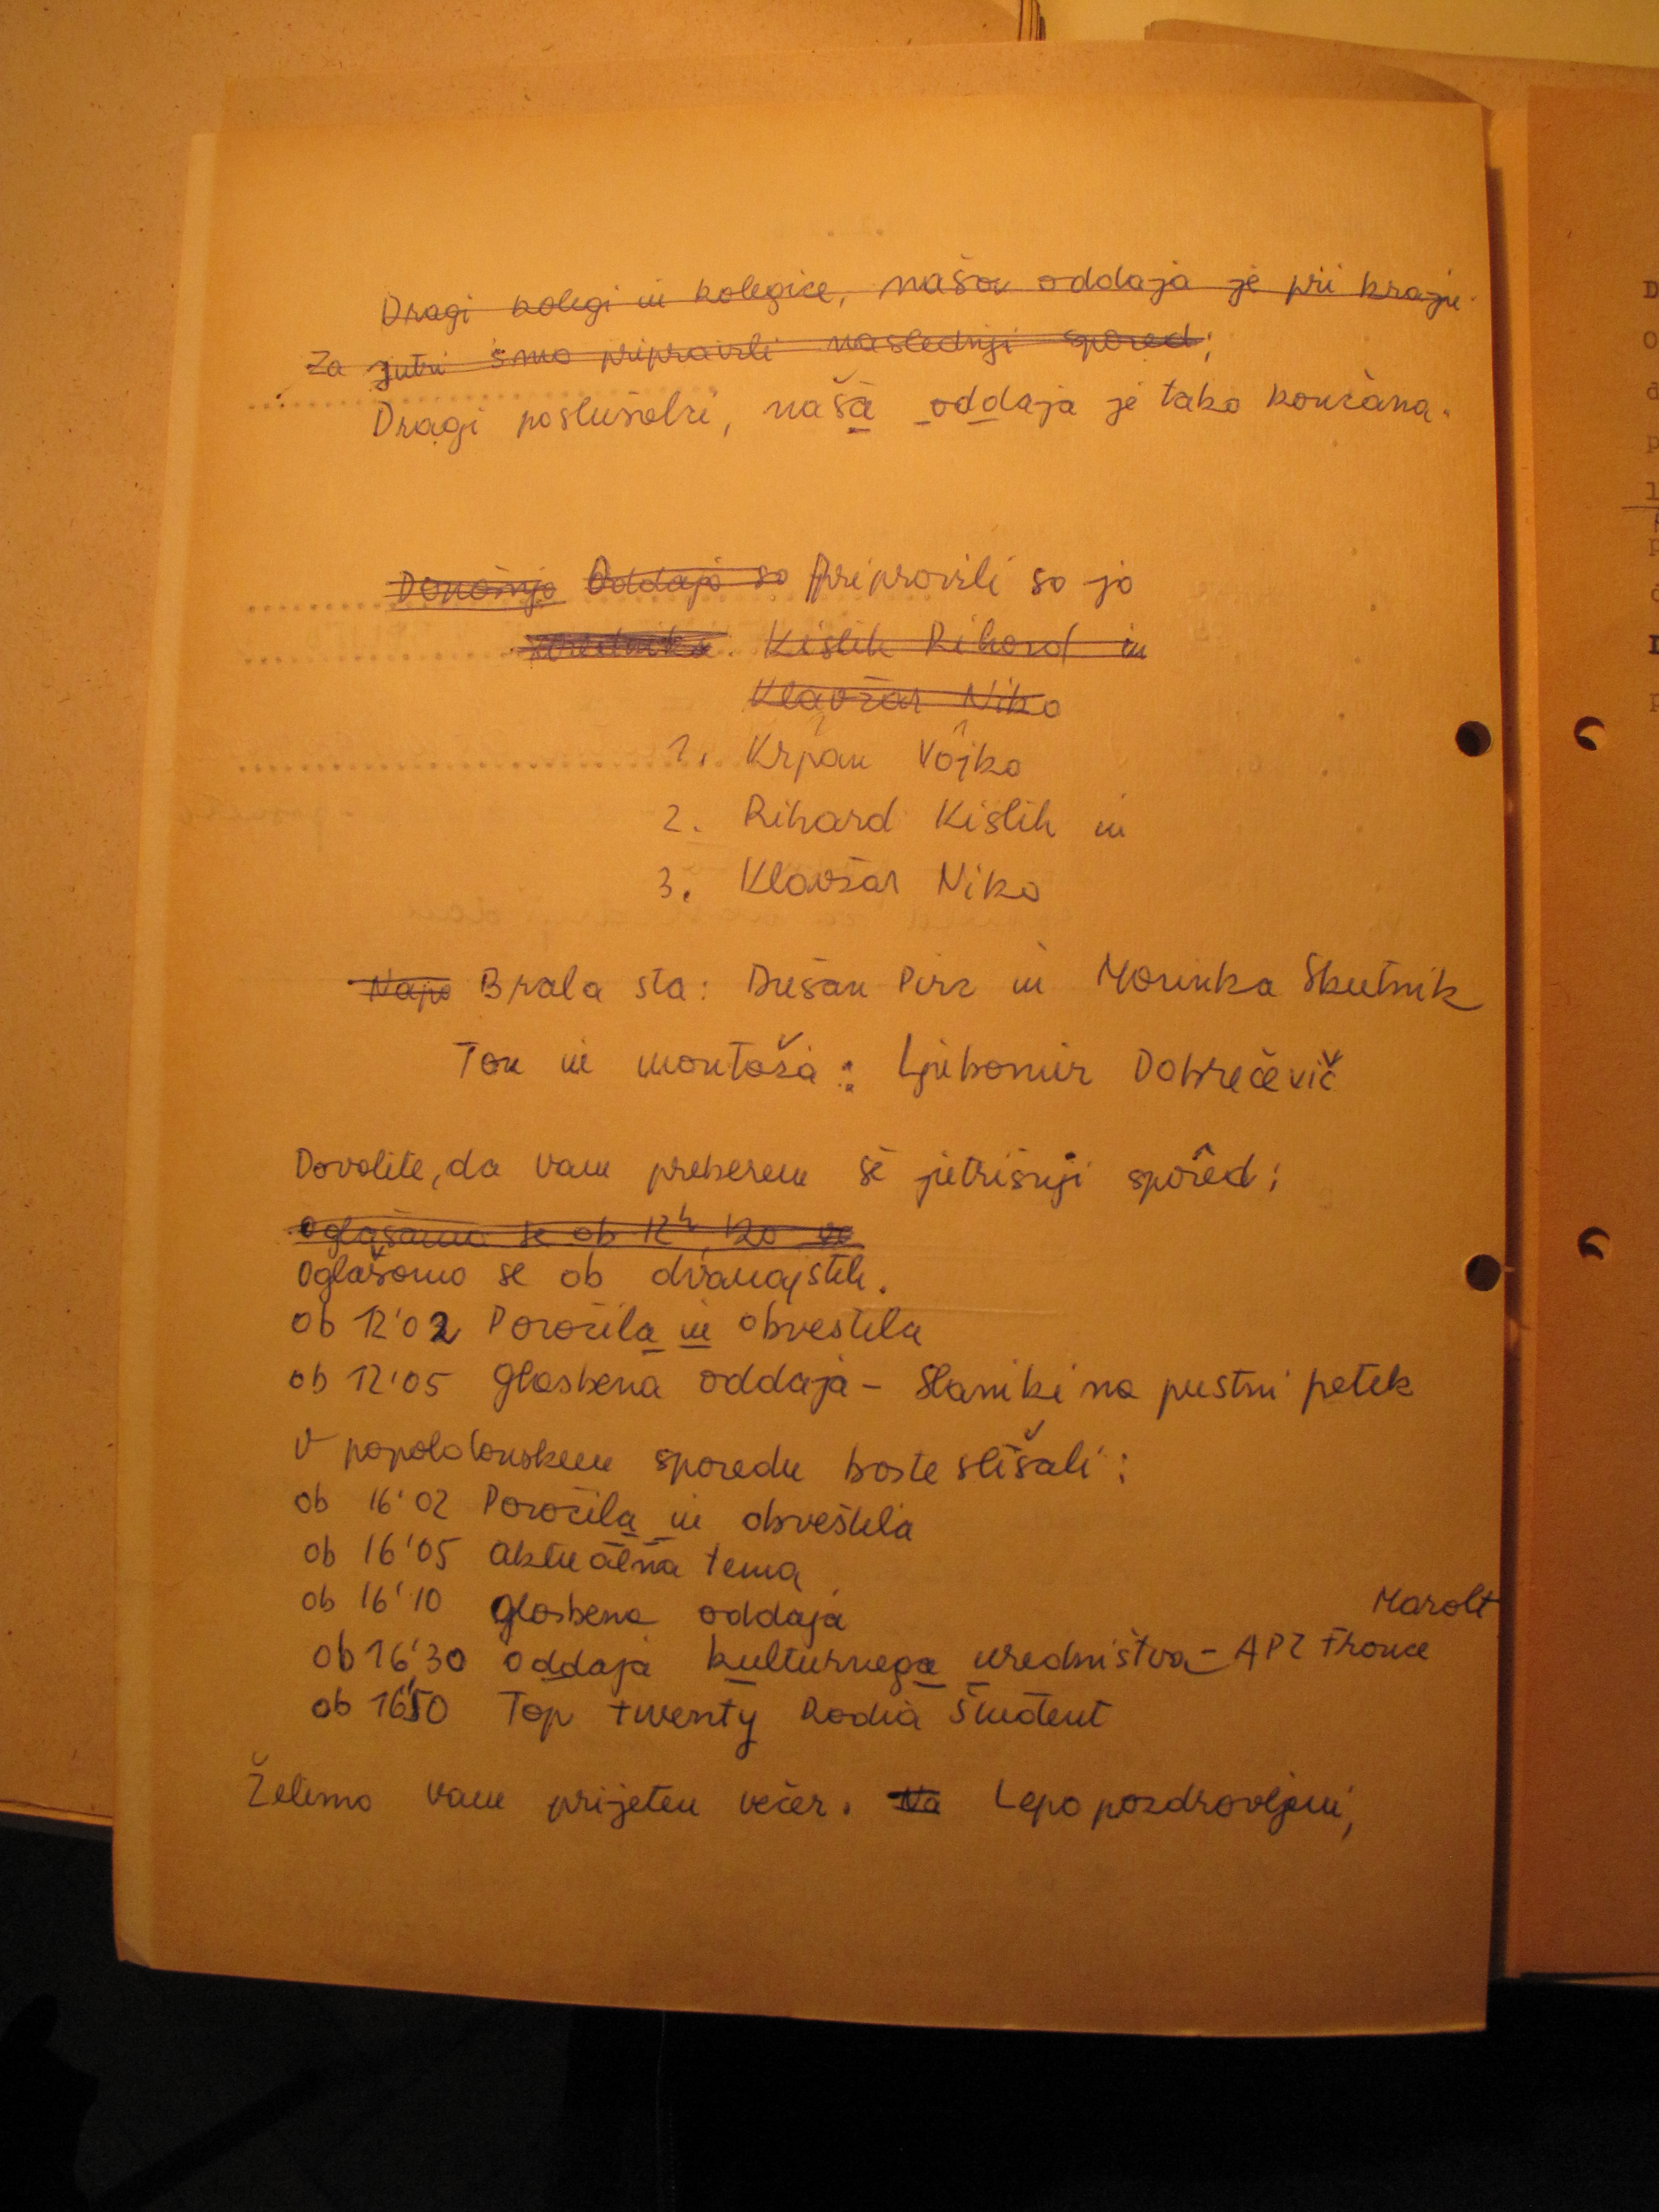 Dragi kolegi in kolegice, naša oddaja je pri kraju.
Za jutri smo pripravili naslednji spored:
Dragi poslušalci, naša oddaja je tako končana.
Današnjo Oddajo so Pripravili so jo
Kislih Rihard in
Klavžar Niko
1. Krpan Vojko
2. Rihard Kislih in
3. Klavžar Niko
Napo Brala sta: Dušan Pirc in Marinka Skutnik
Ton in montaža: Ljubomir Dobrečevič
Dovolite, da vam preberem še jutrišnji spored:
Oglašamo se ob 12h, 120
Oglašamo se ob dvanajstih.
ob 12'02 Poročila in obvestila
ob 12'05 glasbena oddaja - Slaniki na pustni petek
V popoldanskem sporedu boste slišali:
ob 16'02 Poročila in obvestila
ob 16'05 aktualna tema
ob 16'10 glasbena oddaja
ob 16'30 oddaja kulturnega uredništva - APZ France Marolt
ob 16'50 Top twenty Radia Študent
Želimo vam prijeten večer. Na Lepo pozdravljeni,